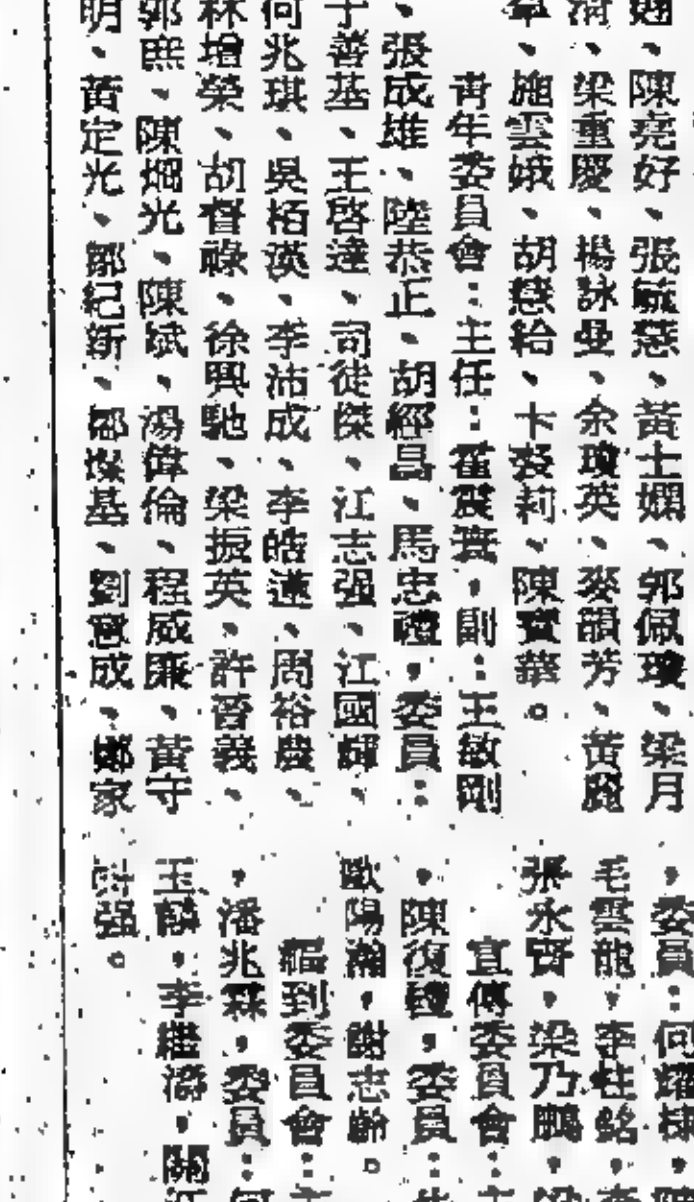 陳堯好、張毓慈、黃士嫻、郭佩瓊、梁月
梁重慶、楊詠曼、余瓊英、麥韻芳、黃
施雲娥、胡慧給、卞裘莉、陳寶華。
青年委員會：主任：霍震寰，副：王敏剛
、張成雄、陸恭正、胡經昌、馬忠禮，委員：
于善基、王啓達、司徒傑、江志强、江國輝、
何兆琪、吳栢漢、李沛成、李皓蓮、周裕農、
林增榮、胡督祿、徐興馳、梁振英、許晉義、
郭熙、陳烱光、陳斌、湯偉倫、程威廉、黃守
明、黃定光、鄒紀新、鄒燦基、劉寬成、鄭家
，委員：何耀棣
毛雲龍，李柱銘
張永賢，梁乃鵬
宣傳委員會：主
，陳復禮，委員：
歐陽瀚，謝志齡。
福利委員會：主
，潘兆霖，委員：何
玉麟，李繼添，關
强。